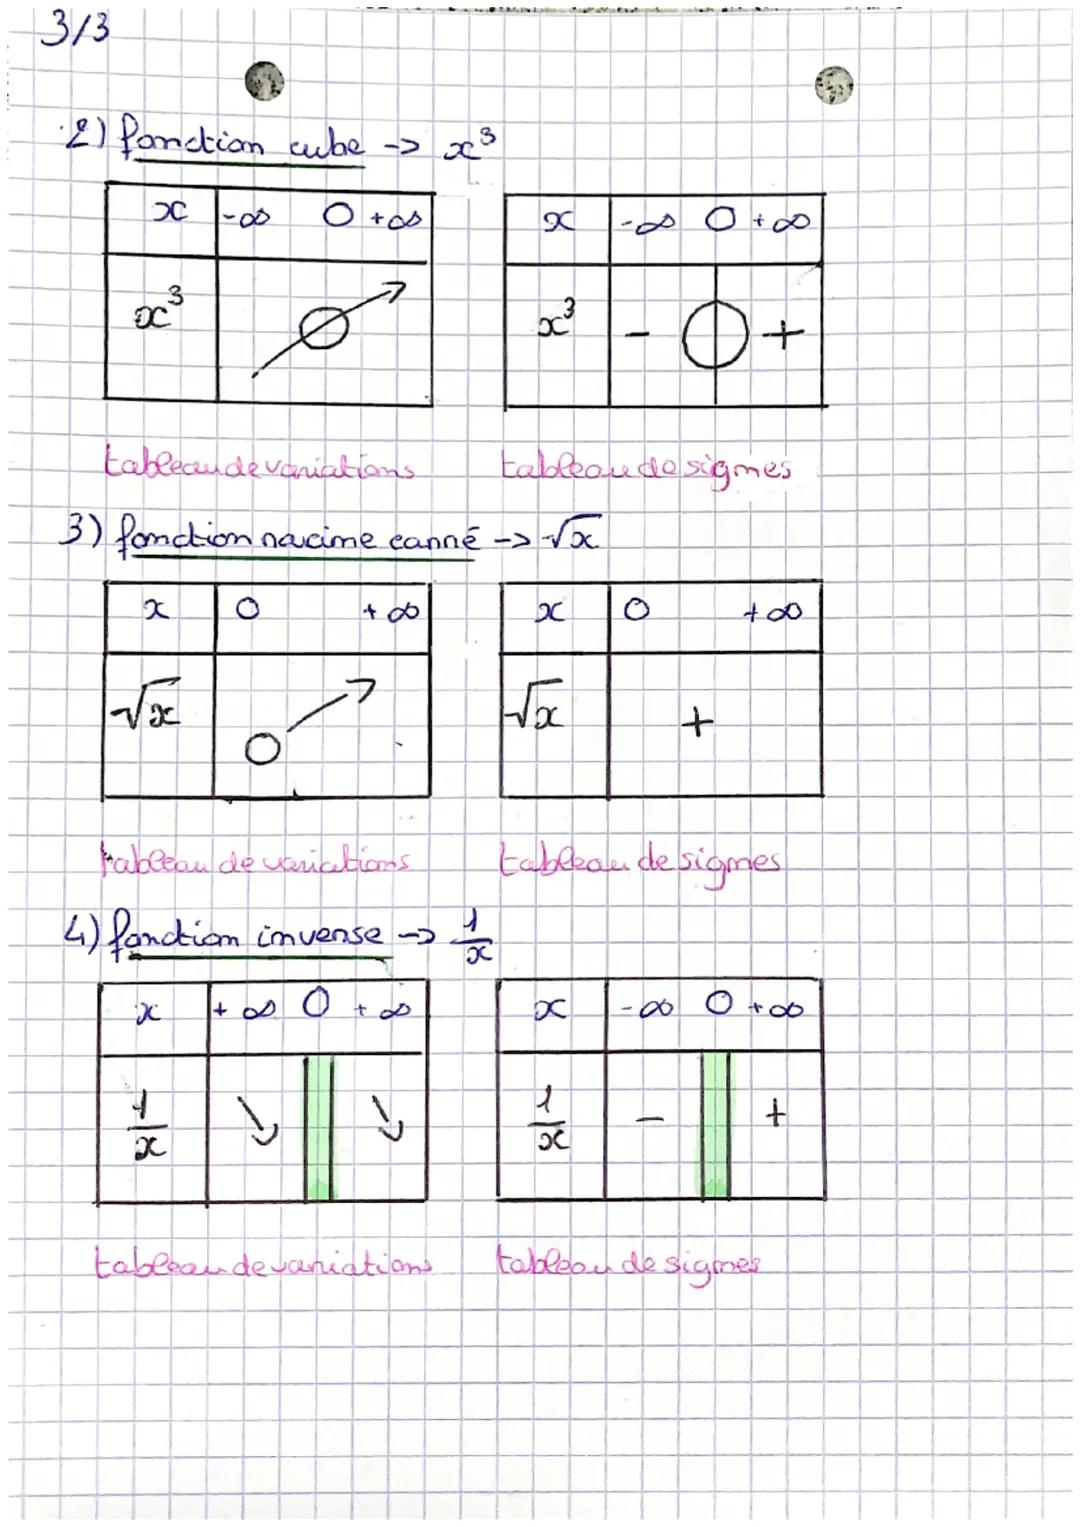 3/3
2) fonction cube -> x³
x -∞ 0 +∞
x³ 0
x -∞ 0 +∞
x³ - 0 +
tableau de variations tableau de signes
3) fonction racine carré -> √x
x 0 +∞
√x 0
x 0 +∞
√x +
tableau de variations tableau de signes
4) fonction inverse -> 1/x
x +∞ 0 +∞
1/x ↘ ↘
x -∞ 0 +∞
1/x - +
tableau de variations tableau de signes